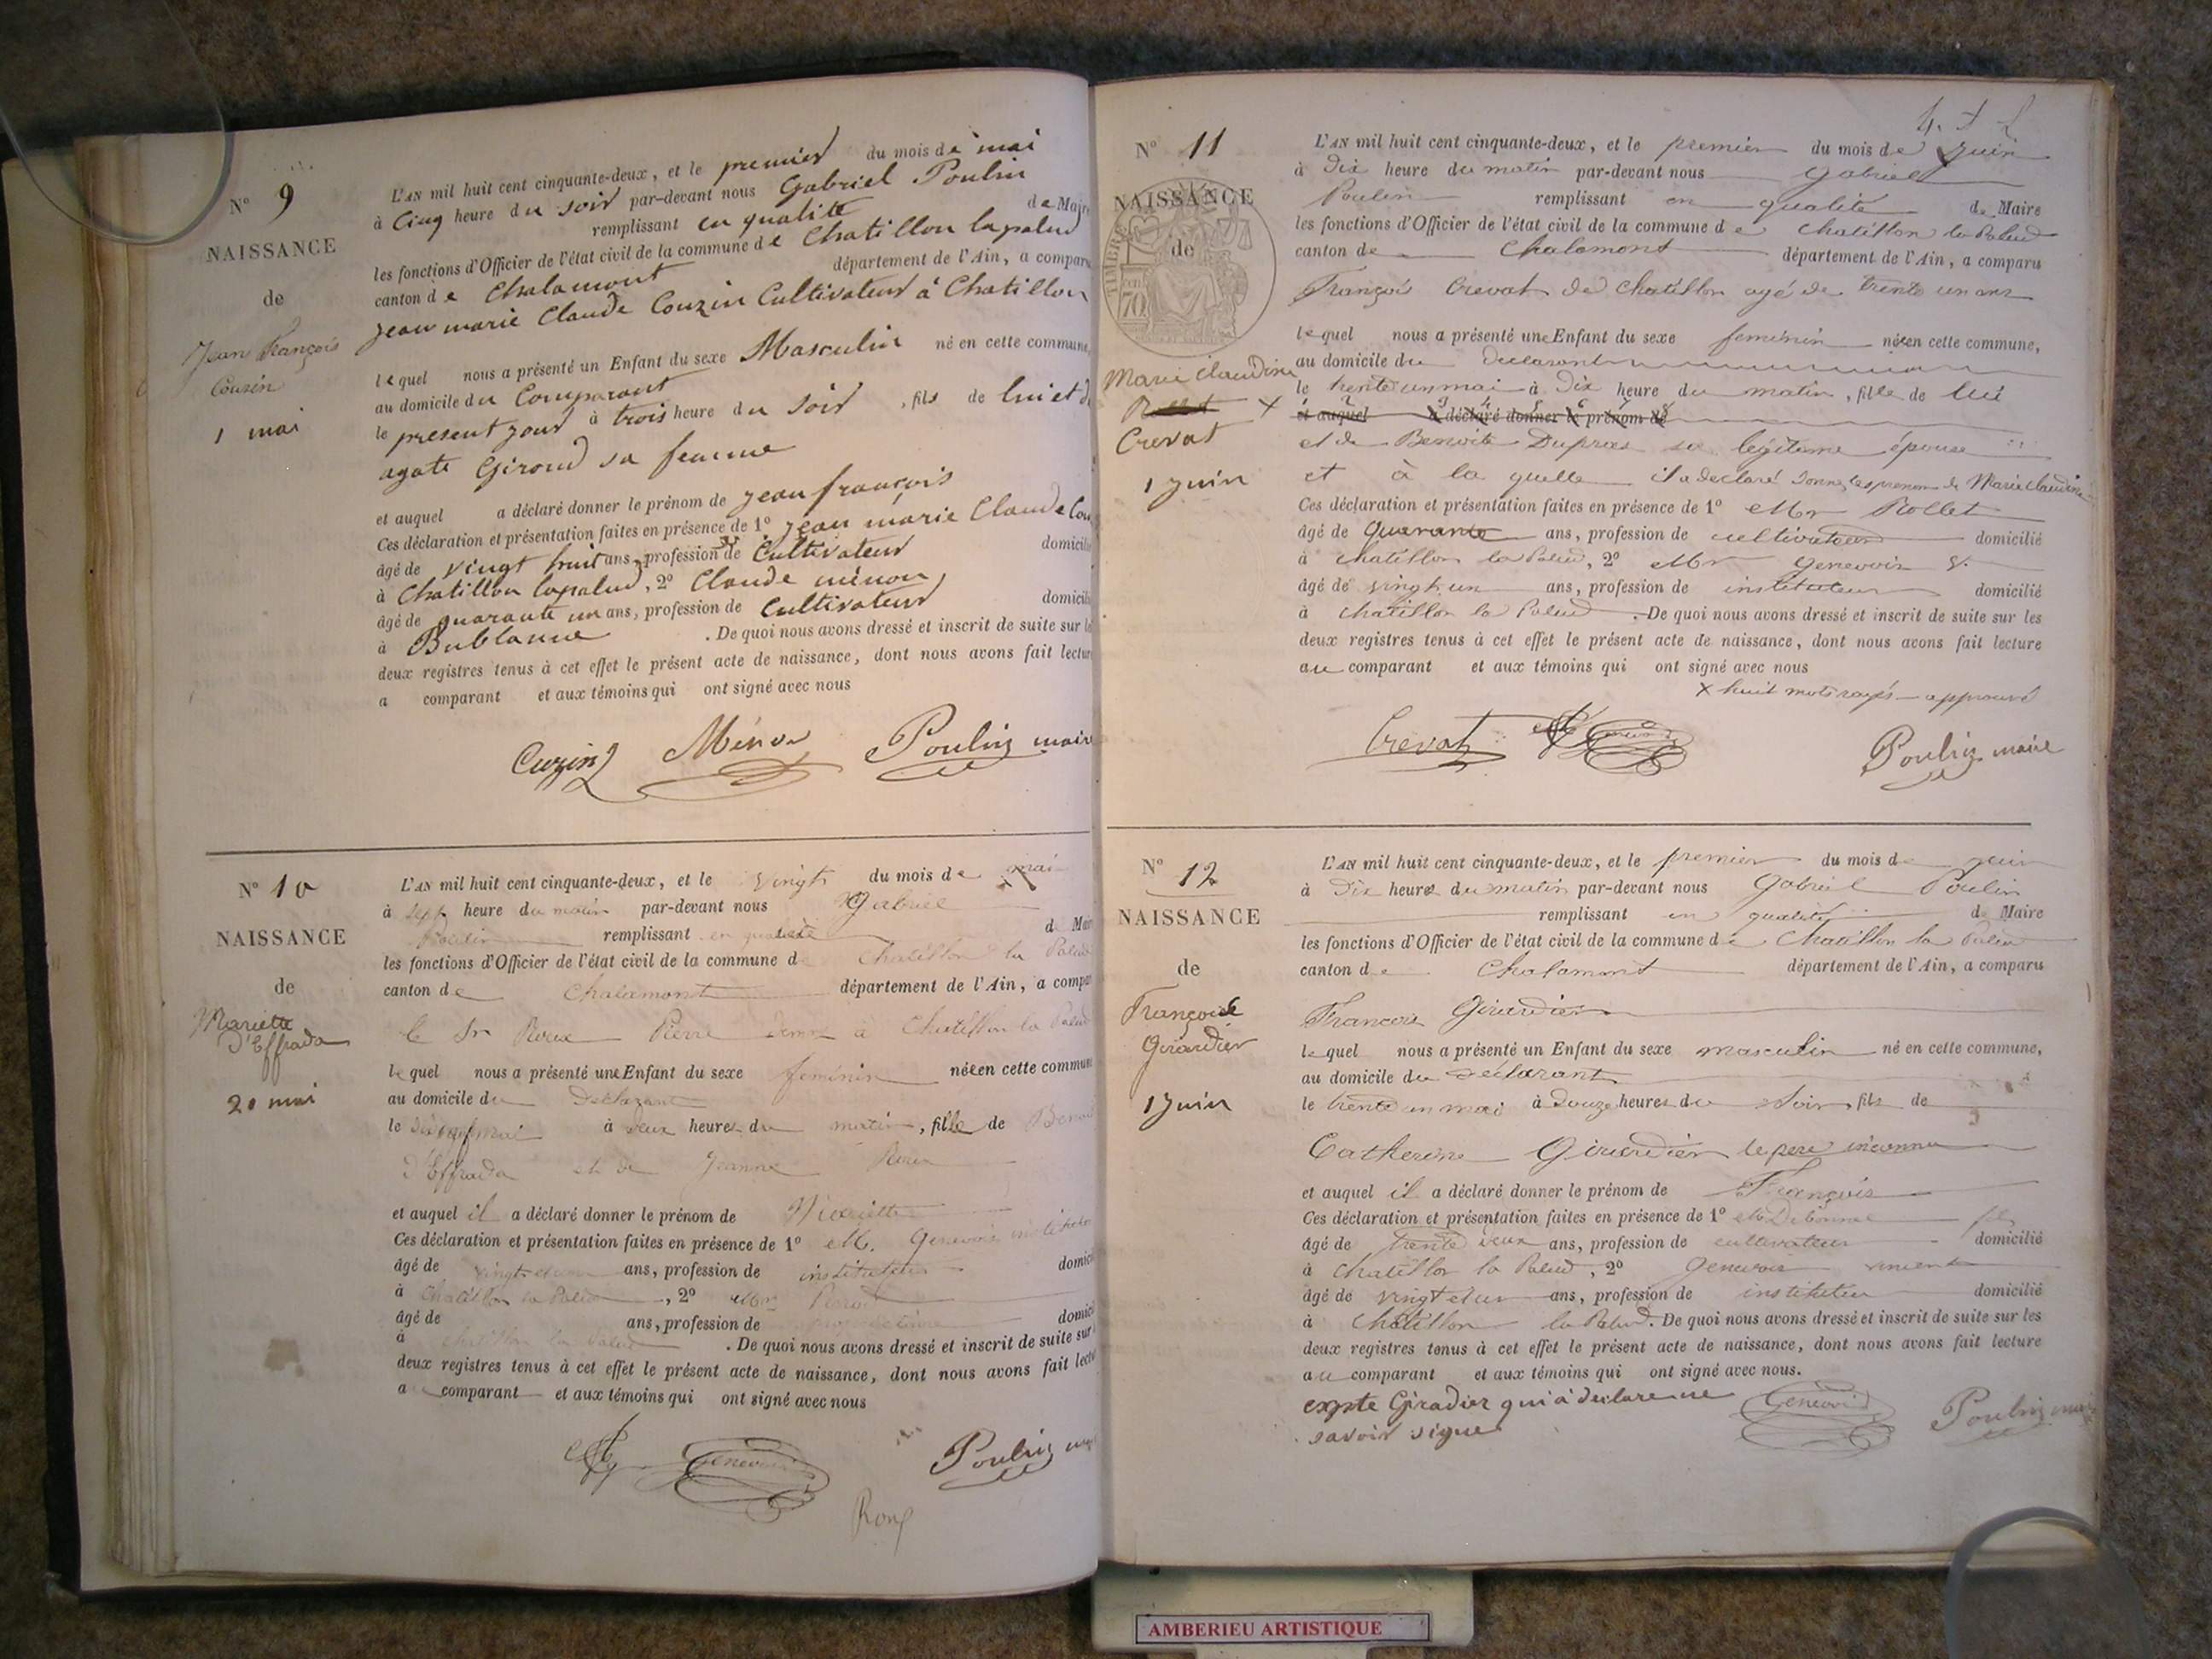 N° 9
NAISSANCE
de
Jean François
Cousin
1 mai
L'AN mil huit cent cinquante-deux, et le premier du mois de mai
à Cinq heure du soir par-devant nous Gabriel Poulin
remplissant en qualité de Maire
les fonctions d'Officier de l'état civil de la commune de Chatillon lapalud
canton de Chalamont département de l'Ain, a comparu
jean marie Claude Couzin Cultivateur à Chatillon
lequel nous a présenté un Enfant du sexe Masculin né en cette commune,
au domicile du Comparant
le present jour à trois heure du soir, fils de lui et d
agate Giroud sa femme
et auquel a déclaré donner le prénom de jean françois
Ces déclaration et présentation faites en présence de 1° jean marie Claude Cou
âgé de vingt huit ans, profession de Cultivateur domicilié
à Chatillon lapalud, 2° Claude ménon
âgé de quarante un ans, profession de Cultivateur domicilié
à Bublanne . De quoi nous avons dressé et inscrit de suite sur les
deux registres tenus à cet effet le présent acte de naissance, dont nous avons fait lecture
a comparant et aux témoins qui ont signé avec nous
Cuzin Ménon Poulin maire
N° 10
NAISSANCE
de
Mariette
d'Effrada
20 mai
L'AN mil huit cent cinquante-deux, et le vingt du mois de mai
à sept heure du matin par-devant nous Gabriel
Poulin remplissant en qualité de Maire
les fonctions d'Officier de l'état civil de la commune d Chatillon la Palud
canton de Chalamont département de l'Ain, a comparu
le Sr Roux Pierre à Chatillon la Palud
lequel nous a présenté une Enfant du sexe feminin née en cette commune
au domicile du Declarant
le mai à deux heures du matin, fille de Benoit
d'Effrada et de Jeanne Roux
et auquel il a déclaré donner le prénom de Mariette
Ces déclaration et présentation faites en présence de 1° M. Genevois instituteur
âgé de vingt et un ans, profession de instituteur domicilié
à Chatillon la Palud, 2° Mr
âgé de ans, profession de domicilié
à Chatillon la Palud . De quoi nous avons dressé et inscrit de suite sur
deux registres tenus à cet effet le présent acte de naissance, dont nous avons fait lecture
au comparant et aux témoins qui ont signé avec nous
Genevois Poulin maire
Roux
N° 11
NAISSANCE
de
TIMBRE
70
Marie Claudine
Rollet X
Crevat
1 juin
L'AN mil huit cent cinquante-deux, et le premier du mois de juin
à dix heure du matin par-devant nous Gabriel
Poulin remplissant en qualité de Maire
les fonctions d'Officier de l'état civil de la commune de Chatillon la Palud
canton de Chalamont département de l'Ain, a comparu
François Crevat de Chatillon agé de trente un ans
lequel nous a présenté une Enfant du sexe feminin née en cette commune,
au domicile du declarant
le trente un mai à dix heure du matin, fille de lui
et auquel a déclaré donner le prénom de
et de Benoite Dupras sa légitime épouse
et à la quelle il a declaré donner les prenom de Marie Claudine
Ces déclaration et présentation faites en présence de 1° Mr Rollet
âgé de Quarante ans, profession de cultivateur domicilié
à Chatillon la Palud, 2° Mr Genevois V.
âgé de vingt un ans, profession de instituteur domicilié
à Chatillon la Palud . De quoi nous avons dressé et inscrit de suite sur les
deux registres tenus à cet effet le présent acte de naissance, dont nous avons fait lecture
au comparant et aux témoins qui ont signé avec nous
X huit mots rayés approuvé
Crevat Genevois Poulin maire
N° 12
NAISSANCE
de
François
Girardier
1 Juin
L'AN mil huit cent cinquante-deux, et le premier du mois de juin
à Dix heures du matin par-devant nous Gabriel Poulin
remplissant en qualité de Maire
les fonctions d'Officier de l'état civil de la commune de Chatillon la Palud
canton de Chalamont département de l'Ain, a comparu
Francois Girardier
lequel nous a présenté un Enfant du sexe masculin né en cette commune,
au domicile du declarant
le trente un mai à Douze heures du Soir, fils de
Catherine Girardier le pere inconnu
et auquel il a déclaré donner le prénom de François
Ces déclaration et présentation faites en présence de 1° Mr Debonne fils
âgé de trente deux ans, profession de cultivateur domicilié
à Chatillon la Palud, 2° Genevois vincent
âgé de vingt et un ans, profession de instituteur domicilié
à Chatillon la Palud. De quoi nous avons dressé et inscrit de suite sur les
deux registres tenus à cet effet le présent acte de naissance, dont nous avons fait lecture
au comparant et aux témoins qui ont signé avec nous.
expte Giradier qui à declare ne
savoir signer
Genevois Poulin maire
AMBERIEU ARTISTIQUE